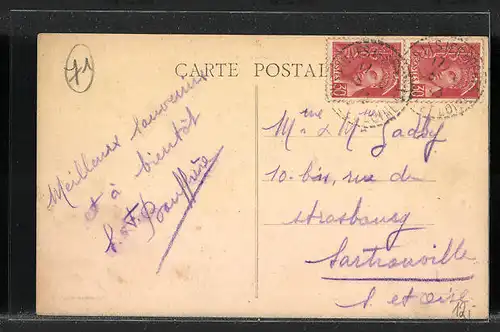 71
CARTE POSTALE
Meilleurs souvenirs
et à bientôt
Mme & Mr
10-bis, rue de
strasbourg
Sartrouville
S. et oise
12.-